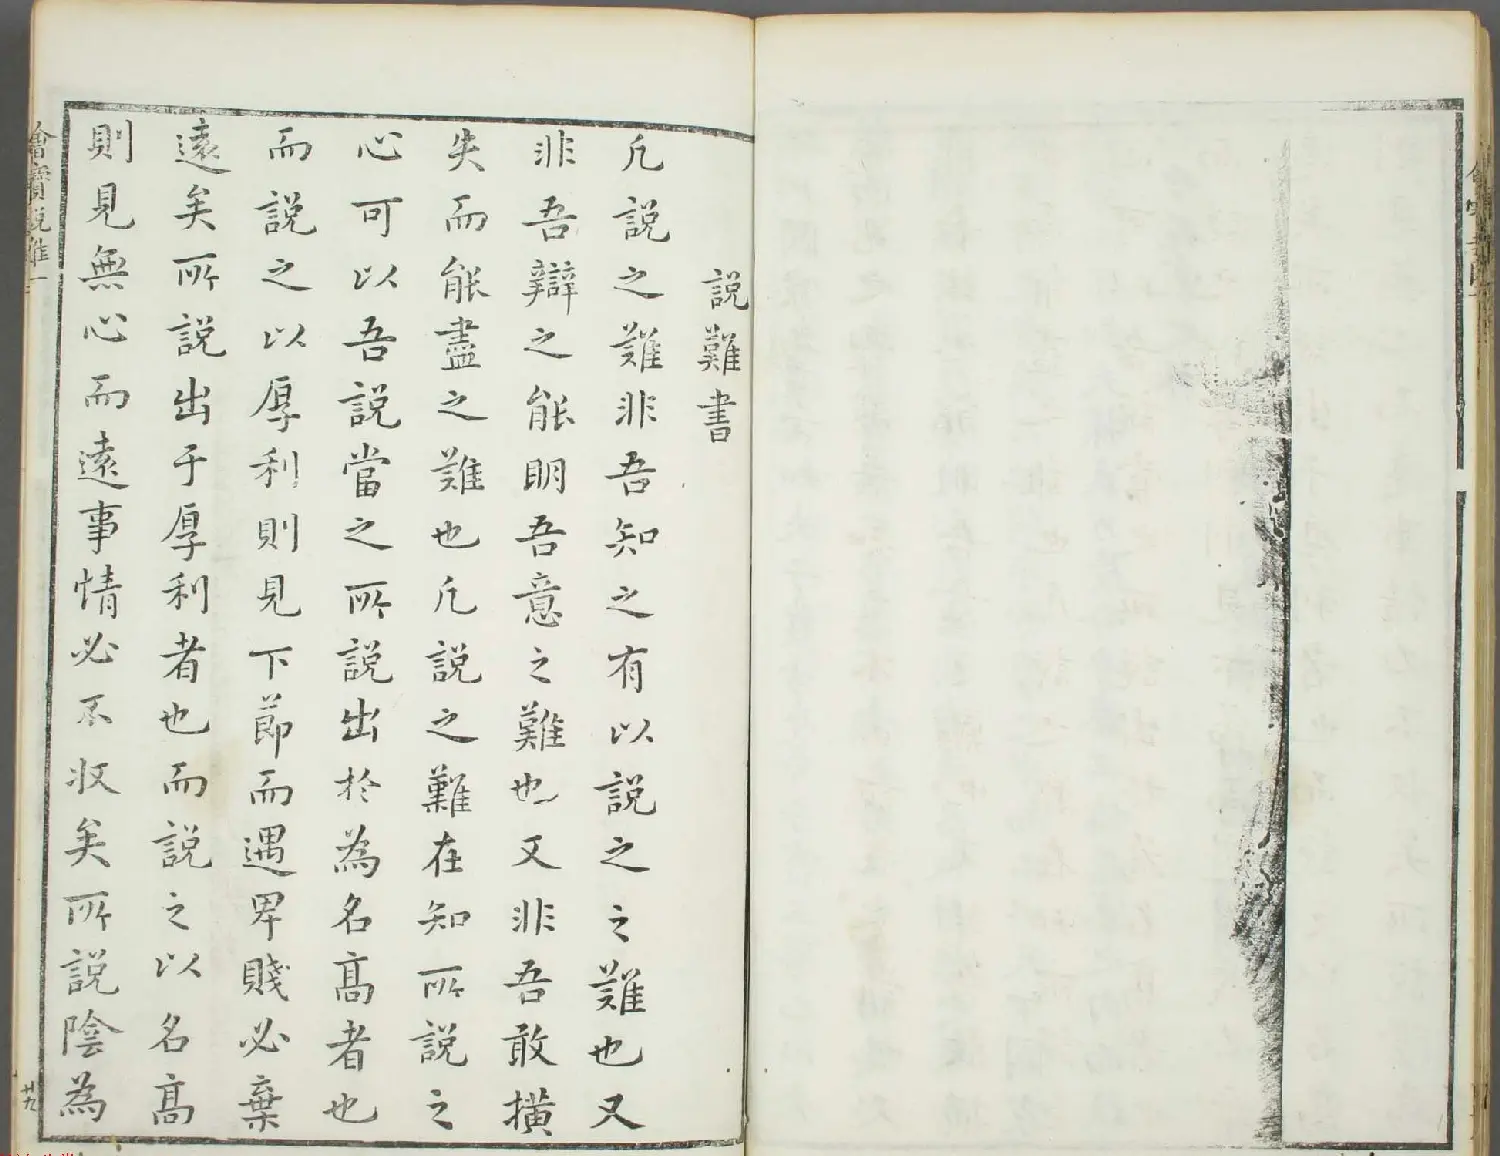 說難書
凡說之難非吾知之有以說之之難也又
非吾辯之能明吾意之難也又非吾敢橫
失而能盡之難也凡說之難在知所說之
心可以吾說當之所說出於為名高者也
而說之以厚利則見下節而遇卑賤必棄
遠矣所說出于厚利者也而說之以名高
則見無心而遠事情必不收矣所說陰為
繪寶說難一
廿九